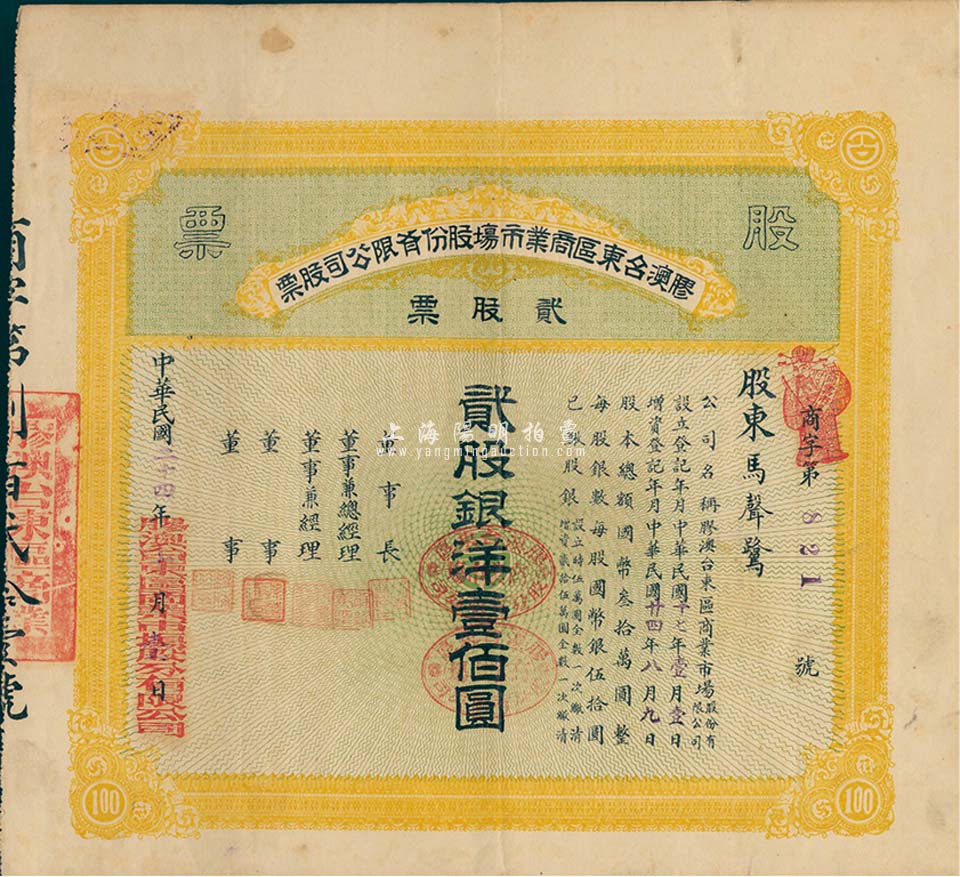 股票
膠澳台東區商業市場股份有限公司股票
貳股票
商字第821號
股東馬聲鷺
公司名稱膠澳台東區商業市場股份有限公司
設立登記年月中華民國十七年壹月壹日
增資登記年月中華民國廿四年八月九日
股本總額國幣叁拾萬圓整
每股銀數每股國幣銀伍拾圓
已繳股銀設立時伍萬圓全數一次繳清
增資貳拾伍萬圓全數一次繳清
貳股銀洋壹佰圓
董事長
董事兼總經理
董事兼經理
董事
董事
中華民國二十四年十月壹日
膠澳台東區商業市場股份有限公司
商字第捌百貳拾壹號
膠澳台東區商業
上海陽明拍賣
www.yangmingauction.com
100
100